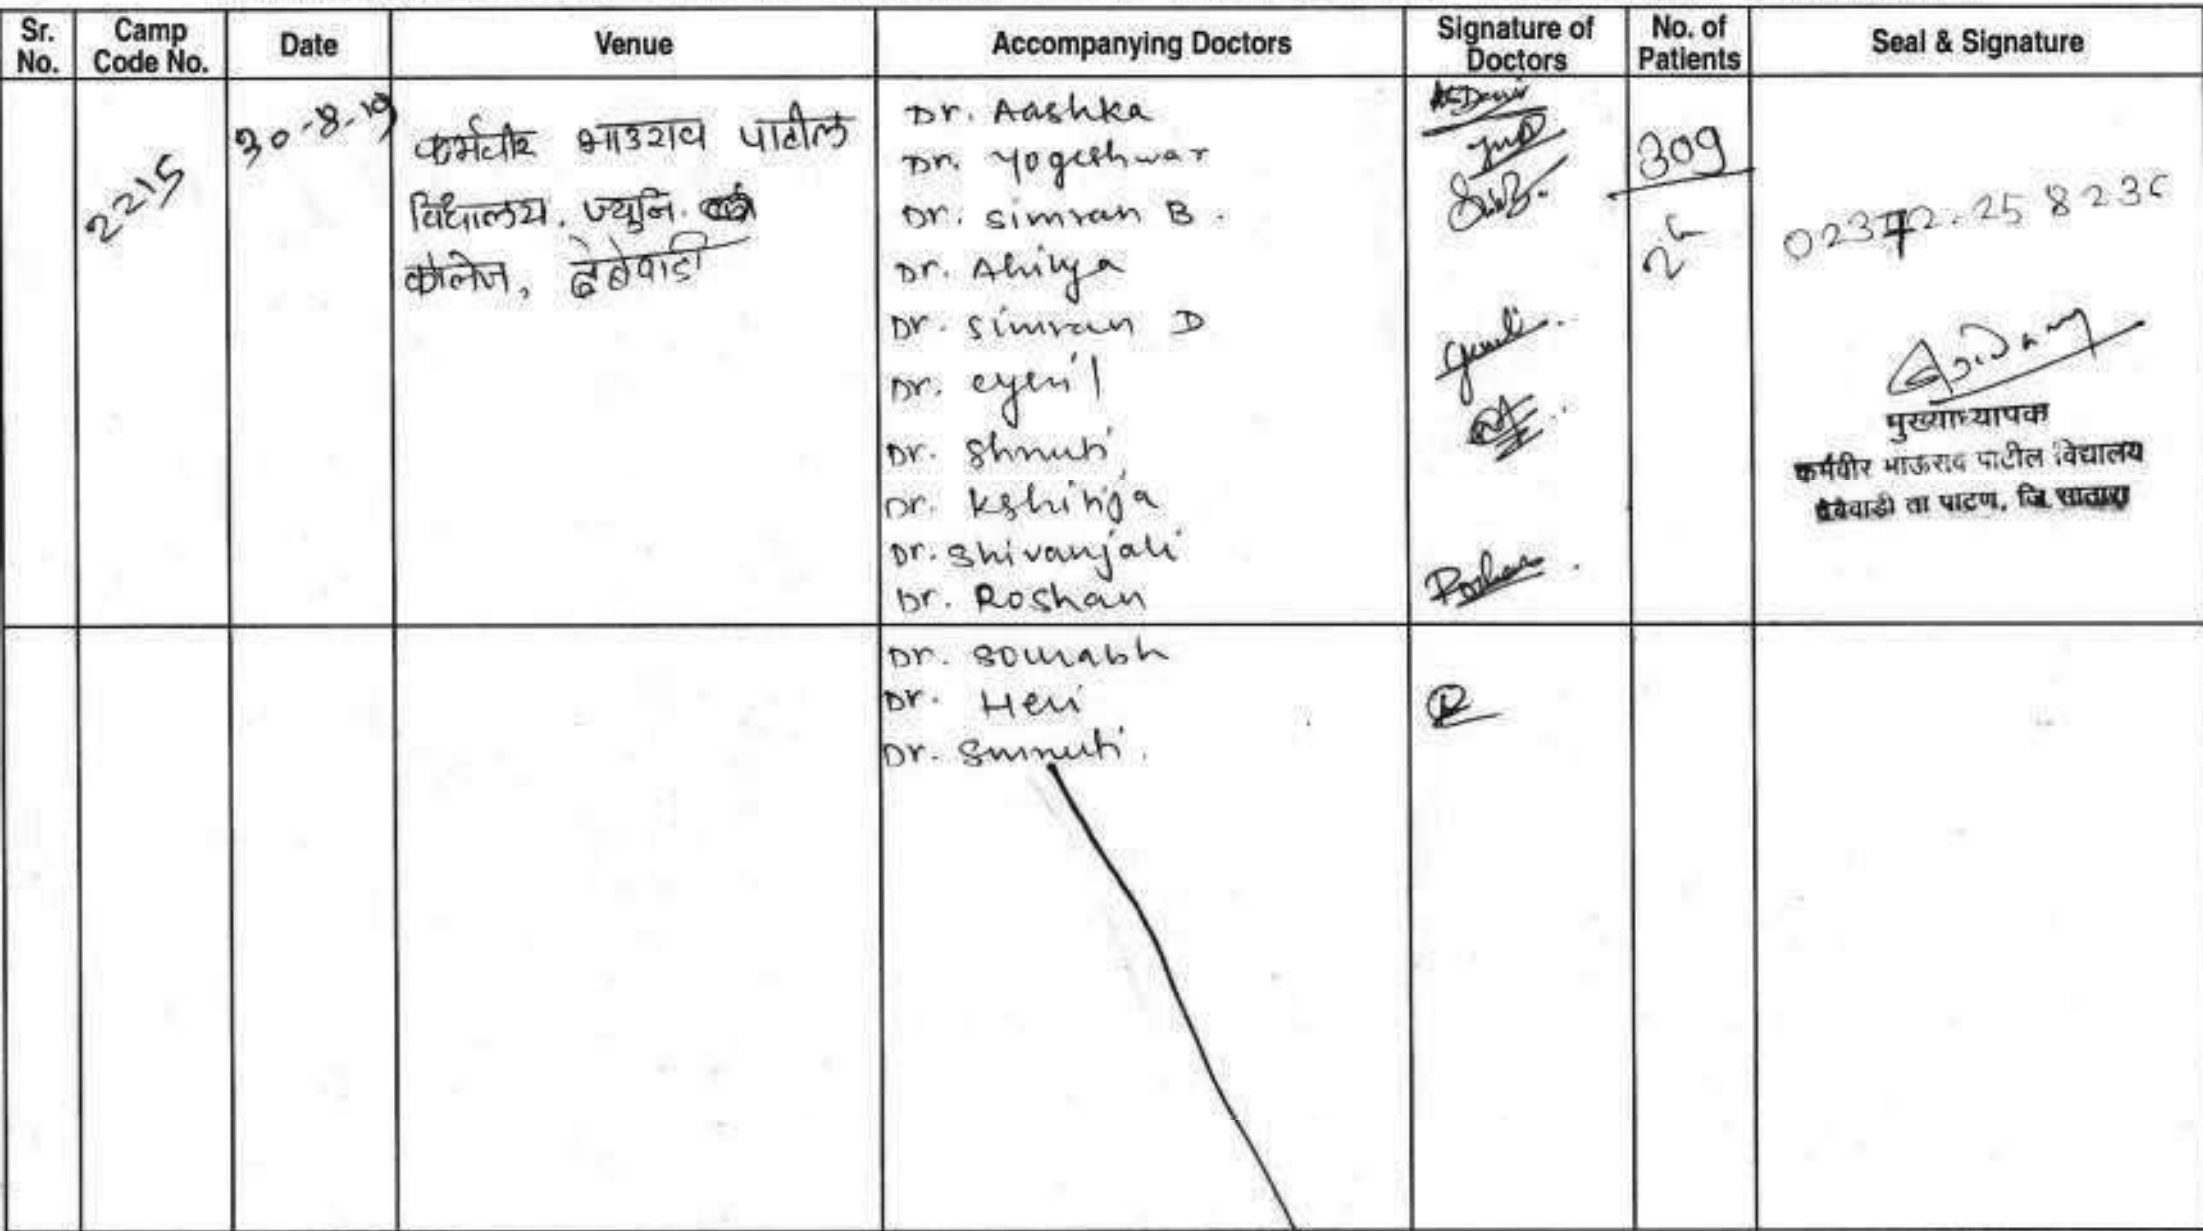 Sr. No. Camp Code No. Date Venue Accompanying Doctors Signature of Doctors No. of Patients Seal & Signature
2215 30-8-19
कर्मवीर भाउराव पाटील
विद्यालय. ज्युनि.
कॉलेज, ढेबेवाडी
Dr. Aashka
Dr. Yogeshwar
Dr. Simran B.
Dr. Ahilya
Dr. Simran D
Dr. eyeril
Dr. Shruti
Dr. Kshitija
Dr. Shivanjali
Dr. Roshan
Dr. Sourabh
Dr. Heri
Dr. Smruti.
Roshan
309
02372.258236
मुख्याध्यापक
कर्मवीर भाऊराव पाटील विद्यालय
ढेबेवाडी ता पाटण, जि. सातारा